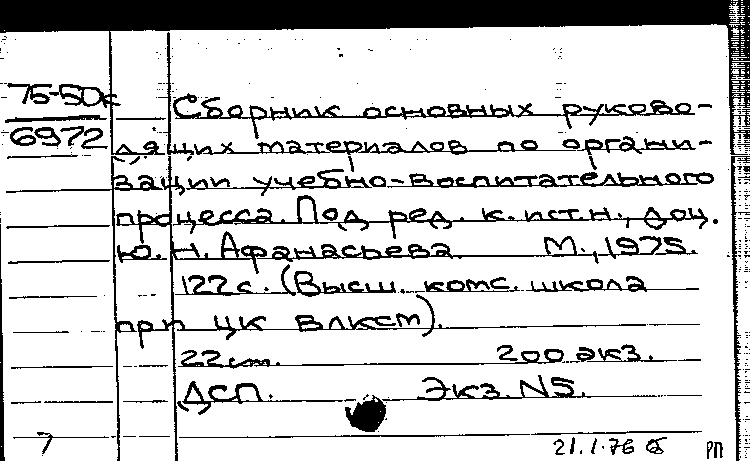 75-50к
6972
Сборник основных руково-
дящих материалов по органи-
зации учебно-воспитательного
процесса. Под ред. к.ист.н., доц.
Ю.Н. Афанасьева. М., 1975.
122 с. (Высш. комс. школа
при ЦК ВЛКСМ).
22 см. 200 экз.
ДСП. Экз. N5.
7 21.1.76 РП